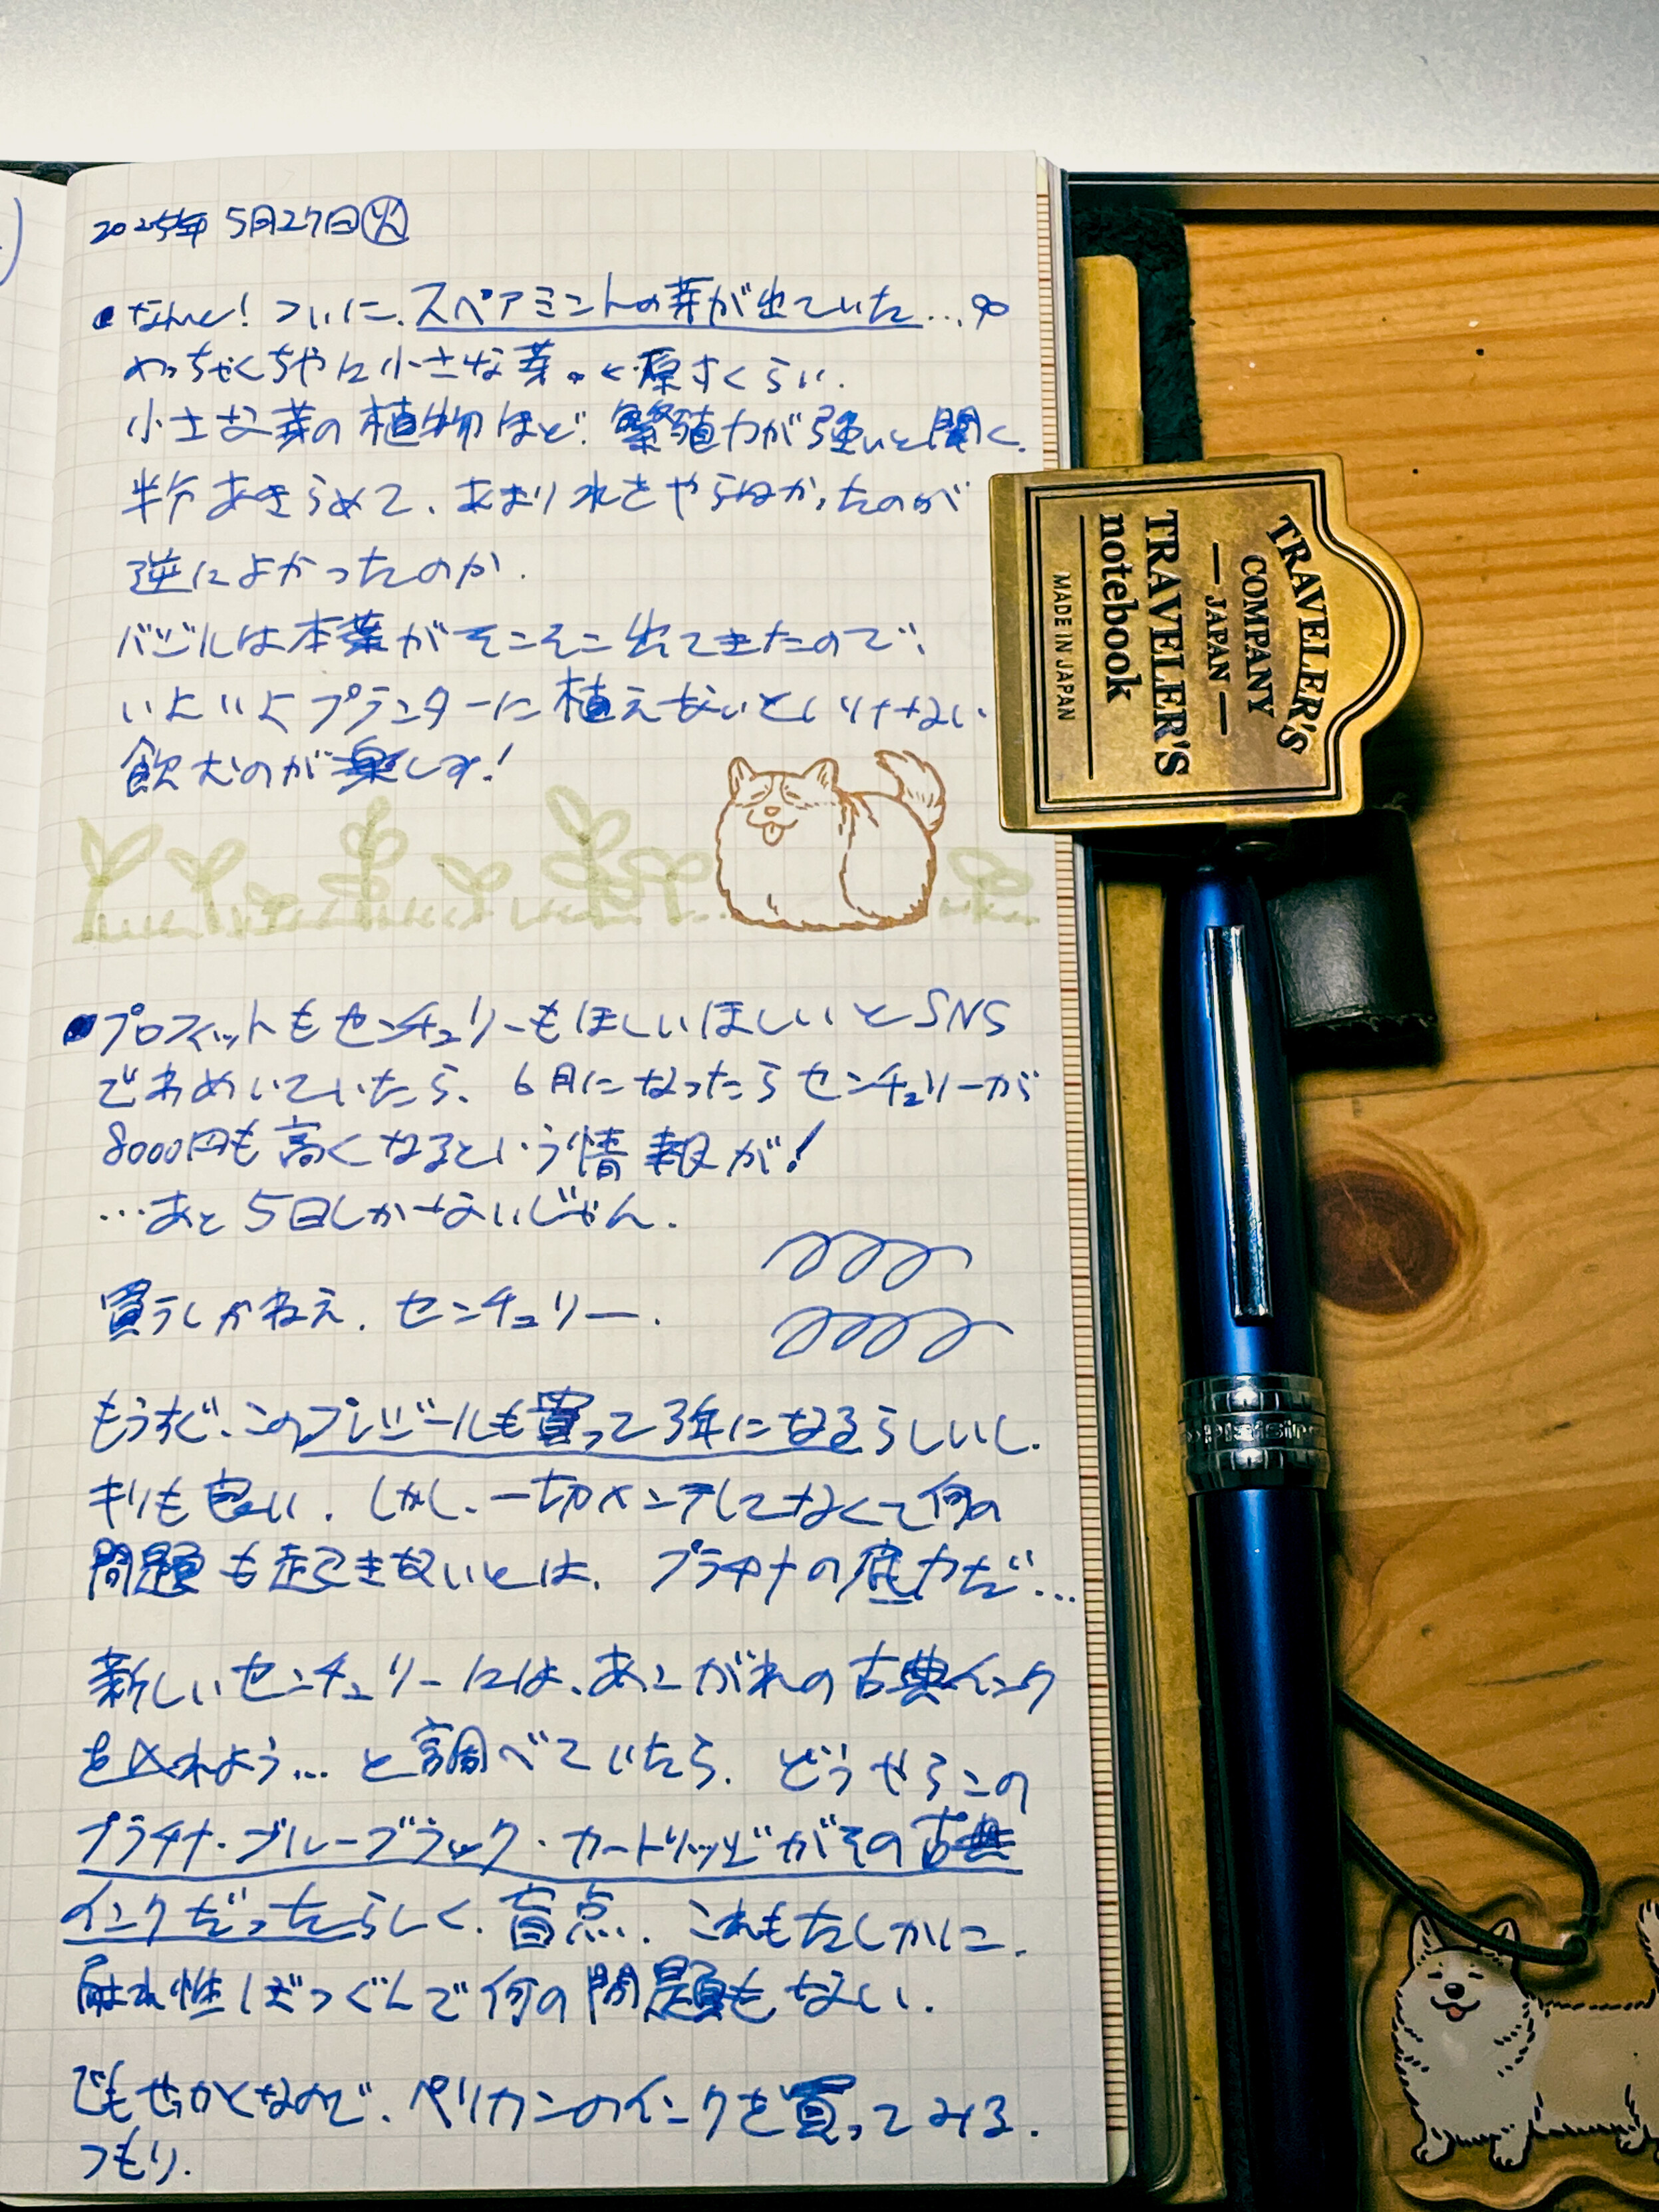 2025年 5月27日㊋
・なんと! ついに、スペアミントの芽が出ていた…
めっちゃくちゃに小さな芽。 ←原すくらい.
小さな芽の植物ほど、繁殖力が強いと聞く.
半分あきらめて、あまり水をやらなかったのが
逆によかったのか.
バジルは本葉がそこそこ出てきたので、
いよいよプランターに植えないといけない
飲むのが楽しみ!
・プロフィットもセンチュリーもほしいほしいとSNS
でわめいていたら、6月になったらセンチュリーが
8000円も高くなるという情報が!
…あと5日しかないじゃん.
買うしかねえ、センチュリー.
もうすぐ、このプレジールも買って3年になるらしいし.
キリも良い. しかし、一切メンテしてなくて何の
問題も起きないとは、プラチナの底力だ…
新しいセンチュリーには、あこがれの古典インク
を入れよう… と調べていたら、どうやらこの
プラチナ・ブルーブラック・カートリッジがその古典
インクだったらしく、盲点. これもたしかに、
耐水性ばつぐんで何の問題もない.
でもせっかくなので、ペリカンのインクを買ってみる.
つもり.
TRAVELER'S
COMPANY
— JAPAN —
TRAVELER'S
notebook
MADE IN JAPAN